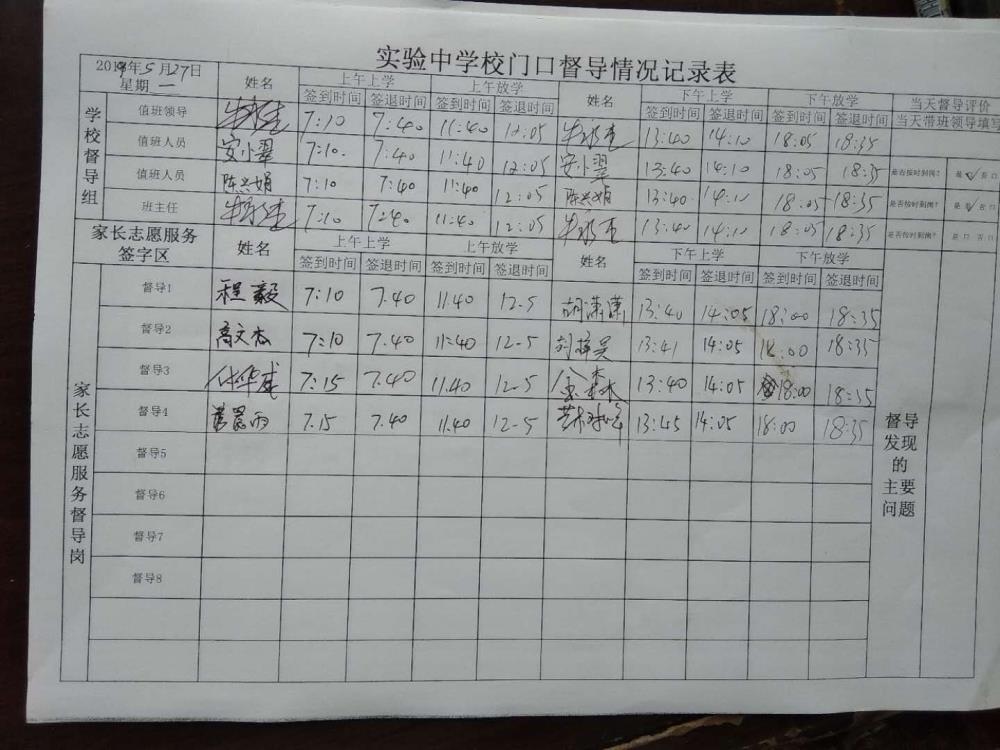 实验中学校门口督导情况记录表
2019年5月27日
星期 一
姓名 上午上学 上午放学 姓名 下午上学 下午放学 当天督导评价
签到时间 签退时间 签到时间 签退时间 签到时间 签退时间 签到时间 签退时间 当天带班领导填写
学校督导组
值班领导 7:10 7:40 11:40 12:05 13:40 14:10 18:05 18:35
值班人员 安小翠 7:10. 7:40 11:40 12:05 安小翠 13:40 14:10 18:05 18:35 是否按时到岗? 是 否 口
值班人员 陈兴娟 7:10 7:40 11:40 12:05 陈兴娟 13:40 14:10 18:05 18:35 是否按时到岗? 是 否 口
班主任 7:10 7:40 11:40 12:05 13:40 14:10 18:05 18:35 是否按时到岗? 是 口 否 口
家长志愿服务
签字区
姓名 上午上学 上午放学 姓名 下午上学 下午放学
签到时间 签退时间 签到时间 签退时间 签到时间 签退时间 签到时间 签退时间
家长志愿服务督导岗
督导1 程毅 7:10 7.40 11.40 12-5 胡潇潇 13:40 14:05 18:00 18:35
督导2 高文杰 7:10 7.40 11:40 12-5 13:41 14:05 18:00 18:35
督导3 7:15 7.40 11.40 12-5 金森 13:40 14:05 18:00 18:35
督导4 7.15 7.40 11.40 12-5 13:45 14:05 18:00 18:35
督导5
督导6
督导7
督导8
督导
发现
的
主要
问题